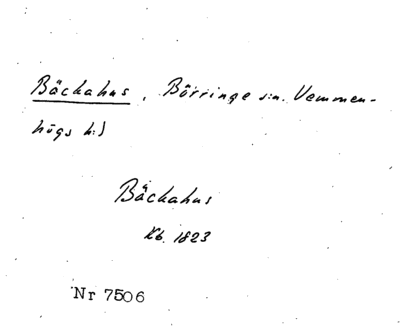 Bäckahus, Börringe sn. Vemmen-
högs hd
Bäckahus
Kb. 1823
Nr 7506